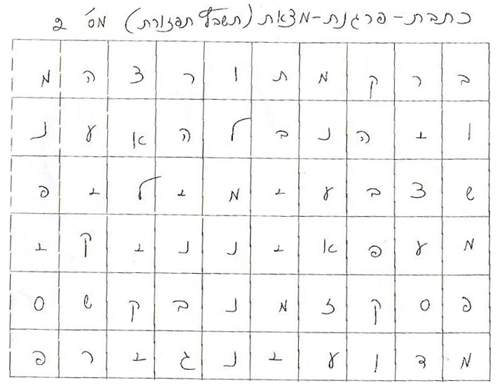 כתבת-פרגנת-מצאת (תשבץ תפזורת) מס' 2
ב ר ק מ ת ו ר צ ה מ
ו י ה נ ב ל ה א ע נ
ש צ ב ע י מ י ל י פ
מ ע פ א י נ נ י ק י
פ ס ק ז מ נ ב ק ש ס
מ ד ו ע י נ ג י ר פ